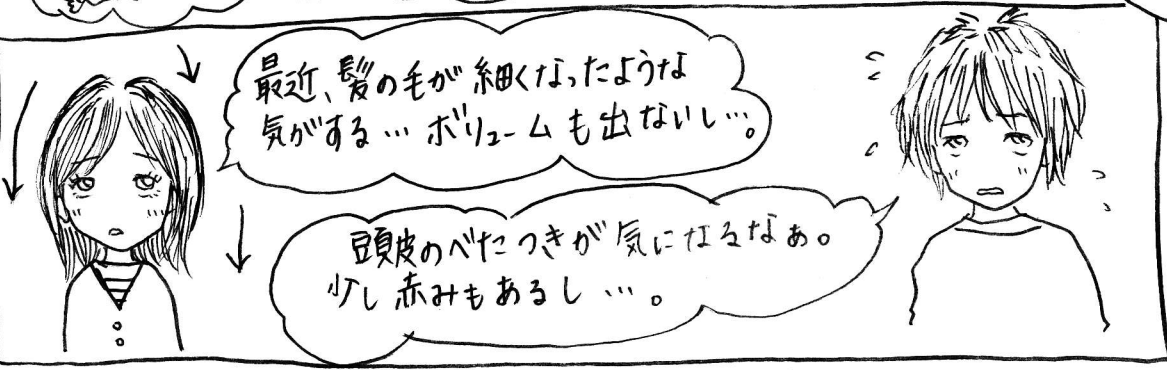 最近、髪の毛が細くなったような
気がする…ボリュームも出ないし…。
頭皮のべたつきが気になるなぁ。
少し赤みもあるし…。